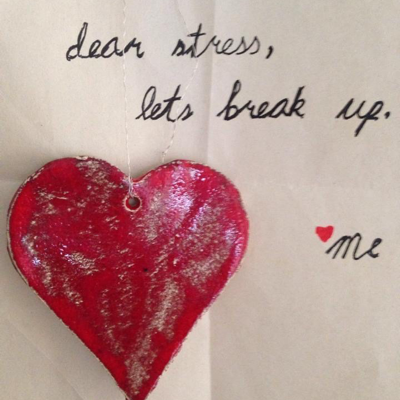 dear stress,
lets break up.
me